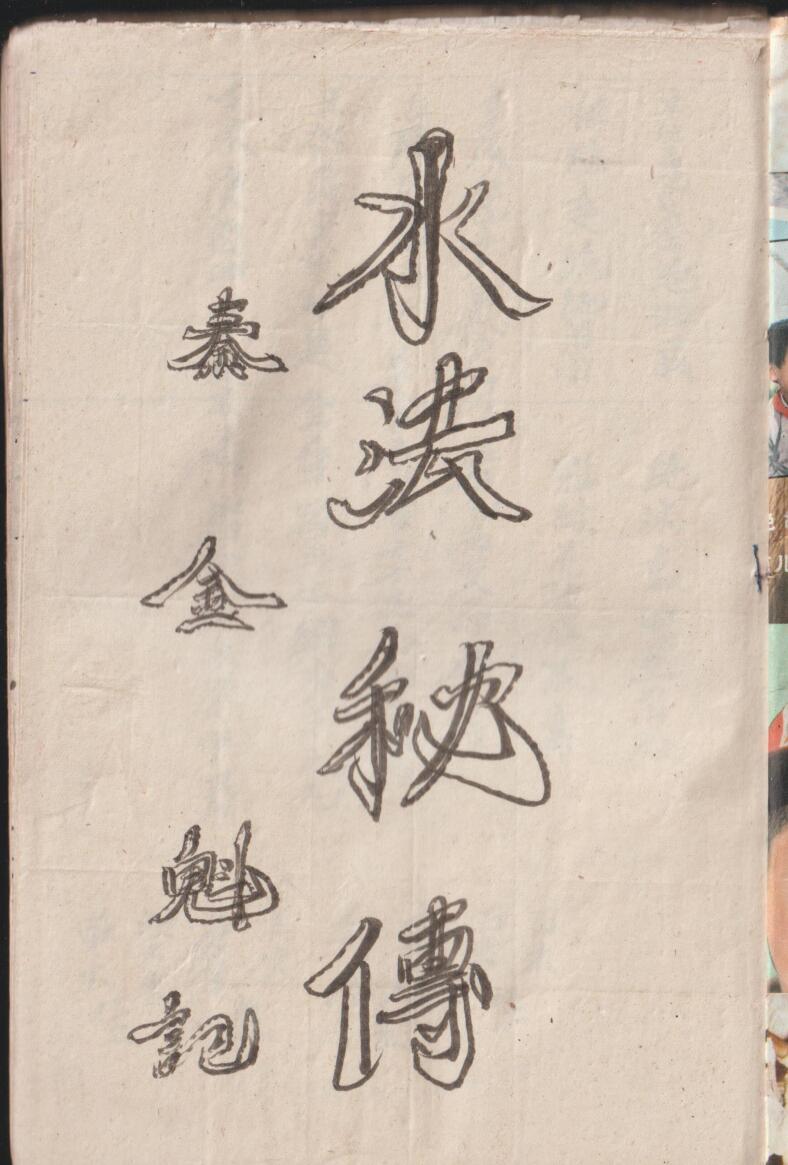 水法秘傳
秦金魁記